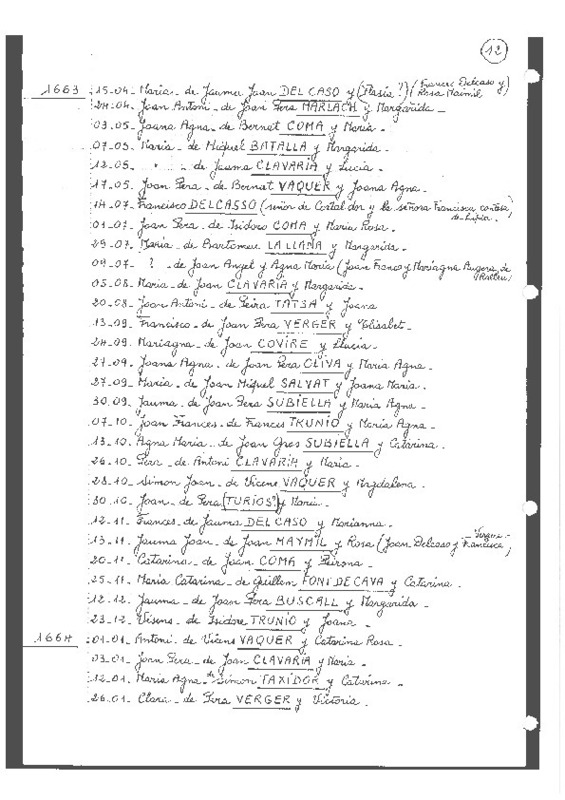 12
1663 15-04- Maria- de Jaume Joan DEL CASO y (Masia?) (Francesc Delcaso y Rosa Maimil
24-04- Joan Antoni- de Joan Pera MARLACH y Margarida-
03-05- Joana Agna- de Bernat COMA y Maria-
07-05- Maria- de Miquel BATALLA y Margarida
12-05- " - de Jauma CLAVARIA y Lucia-
17-05- Joan Pera- de Bernat VAQUER y Joana Agna-
14-07- Francisco DELCASSO (señor de Cortal den y la señora Francisca
01-07- Joan Pera- de Isidoro COMA y Maria Rosa-
29-07- Maria- de Bartomeu LA LLANA y Margarida-
09-07- ? - de Joan Angel y Agna Maria (Joan Franco y Mariagna
05-08- Maria- de Joan CLAVARIA y Margarida-
20-08- Joan Antoni- de Peira TATSA y Joana
13-09- Francisco- de Joan Pera VERGER y Elisabet-
24-09- Mariagna- de Joan COVIRE y Llucia-
27-09- Joana Agna- de Joan Pera OLIVA y Maria Agna-
27-09- Maria- de Joan Miquel SALVAT y Joana Maria-
30-09- Jauma- de Joan Pera SUBIELLA y Maria Agna-
07-10- Joan Frances- de Frances TRUNIO y Maria Agna-
13-10- Agna Maria- de Joan Gres SUBIELLA y Catarina-
26-10- Pera- de Antoni CLAVARIA y Maria-
28-10- Simon Joan- de Vicens VAQUER y Magdalena-
30-10- Joan- de Pera (TURIOS?) y Maria-
12-11- Frances- de Jauma DEL CASO y Marianna-
13-11- Jauma Joan- de Joan MAYMIL y Rosa (Joan Delcaso y Francisca)
20-11- Catarina- de Joan COMA y
25-11- Maria Catarina- de Guillem FONTDECAVA y Catarina-
12-12- Jauma- de Joan Pera BUSCALL y Margarida-
23-12- Visens- de Isidore TRUNIO y Joana-
1664 01-01- Antoni- de Vicens VAQUER y Catarina Rosa-
03-01- Joan Pera- de Joan CLAVARIA y Maria-
12-01- Maria Agna- de Simon TAXIDOR y Catarina-
26-01- Clara- de Pera VERGER y Victoria-